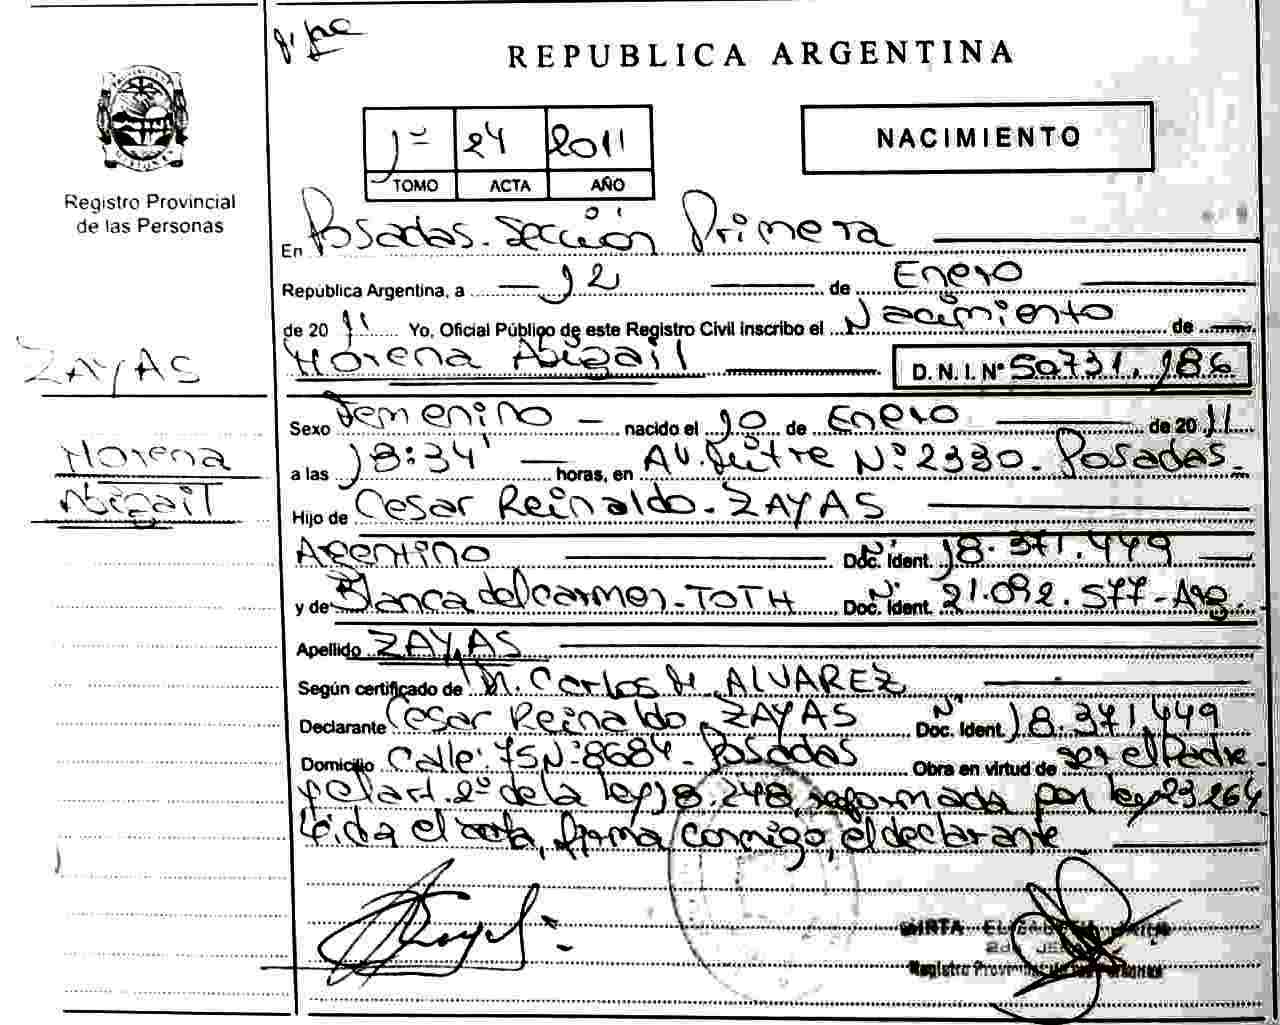 REPUBLICA ARGENTINA
Registro Provincial
de las Personas
1º 24 2011
TOMO ACTA AÑO
NACIMIENTO
En Posadas. Sección Primera
República Argentina, a 12 de Enero
de 2011 Yo, Oficial Público de este Registro Civil inscribo el Nacimiento de
Morena Abigail D. N. I. Nº 50731.186
ZAYAS
Morena
Abigail
Sexo Femenino nacido el 10 de Enero de 2011
a las 18:34' horas, en AV. Mitre Nº 2330. Posadas.
Hijo de Cesar Reinaldo. ZAYAS
Agentino Doc. Ident. Nº 18.371.449
y de Blanca del carmen. TOTH Doc. Ident. Nº 21.092.577-Arg.
Apellido ZAYAS
Según certificado de Carlos M. ALVAREZ
Declarante Cesar Reinaldo. ZAYAS Doc. Ident. Nº 18.371.449
Domicilio Calle: 75 Nº 8684. Posadas Obra en virtud de ser el Padre
y el art. 2º de la ley 18.248, reformada por ley 23264
Leida el acta, firma conmigo, el declarante
MIRTA
Registro Provincial de las Personas